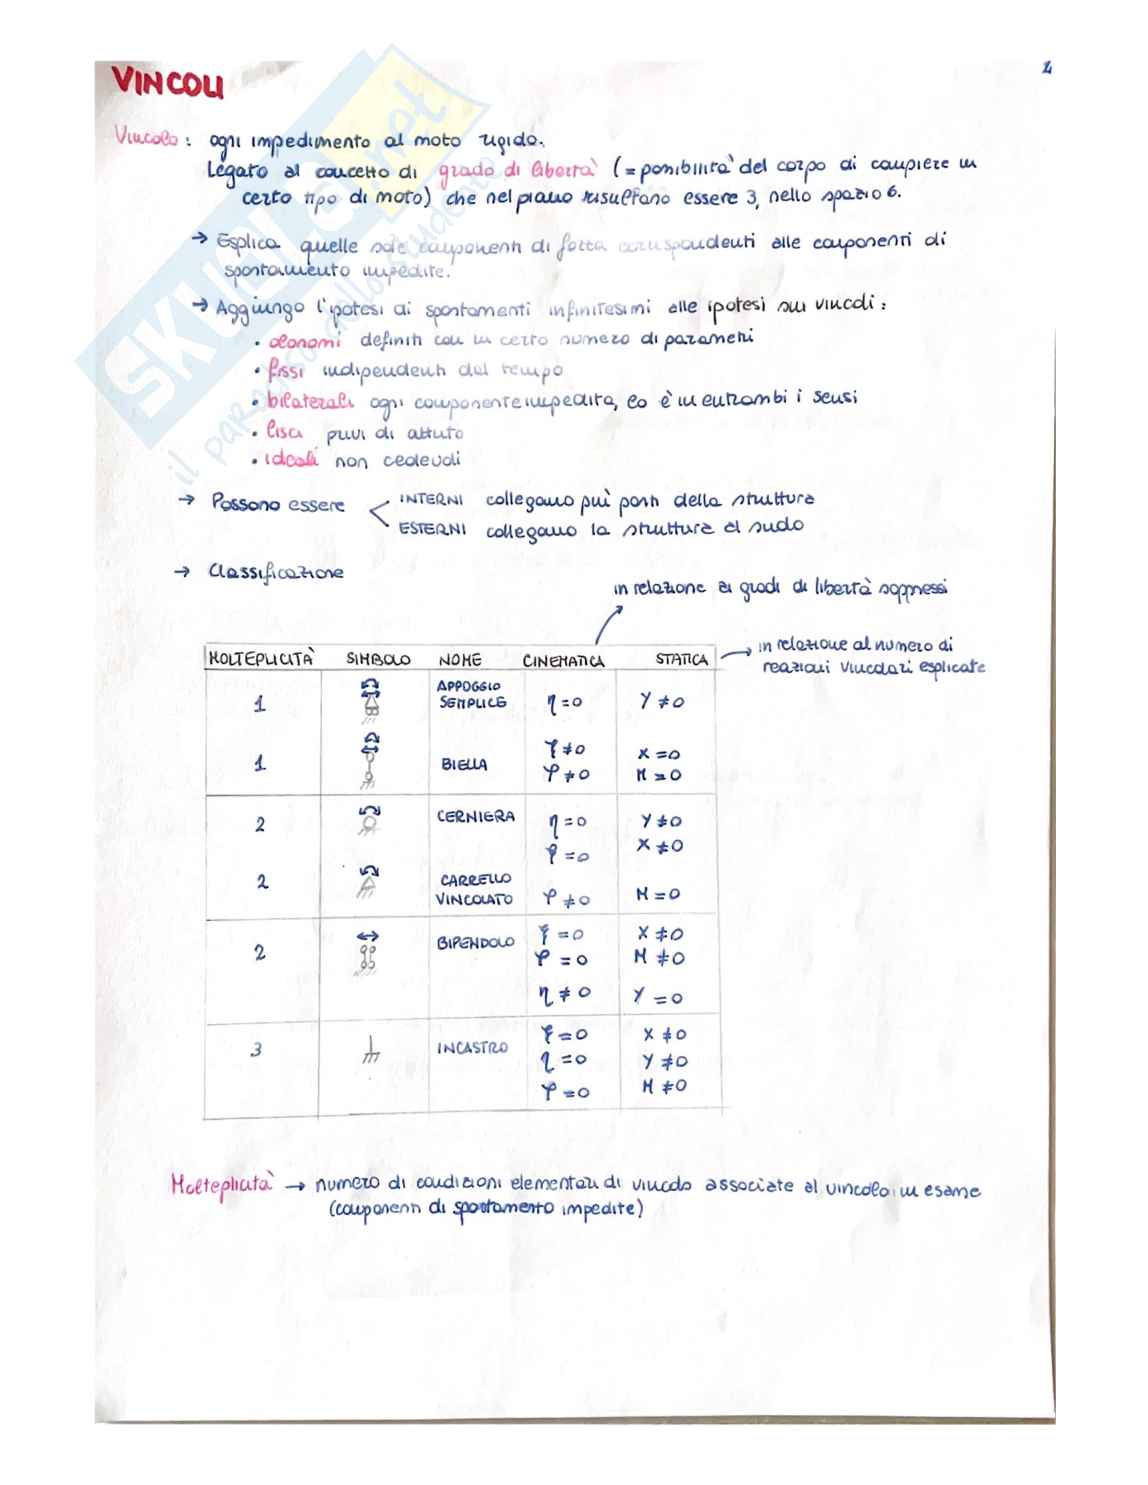 4
VINCOLI
Vincolo: ogni impedimento al moto rigido.
Legato al concetto di grado di libertà (= possibilità del corpo di compiere un
certo tipo di moto) che nel piano risultano essere 3, nello spazio 6.
→ Esplica quelle sole componenti di forza corrispondenti alle componenti di
spostamento impedite.
→ Aggiungo l'ipotesi di spostamenti infinitesimi alle ipotesi sui vincoli:
• olonomi definiti con un certo numero di parametri
• fissi indipendenti dal tempo
• bilaterali ogni componente impedita, lo è in entrambi i sensi
• lisci privi di attrito
• ideali non cedevoli
→ Possono essere INTERNI collegano più parti della struttura
ESTERNI collegano la struttura al suolo
→ Classificazione
in relazione ai gradi di libertà soppressi
in relazione al numero di
reazioni vincolari esplicate
MOLTEPLICITÀ SIMBOLO NOME CINEMATICA STATICA
1 APPOGGIO SEMPLICE η=0 Y≠0
1 BIELLA ξ≠0 X=0
φ≠0 M=0
2 CERNIERA η=0 Y≠0
ξ=0 X≠0
2 CARRELLO VINCOLATO φ≠0 M=0
2 BIPENDOLO ξ=0 X≠0
φ=0 M≠0
η≠0 Y=0
3 INCASTRO ξ=0 X≠0
η=0 Y≠0
φ=0 M≠0
Molteplicità → numero di condizioni elementari di vincolo associate al vincolo in esame
(componenti di spostamento impedite)
SKUOLA.net
il paradiso dello studente